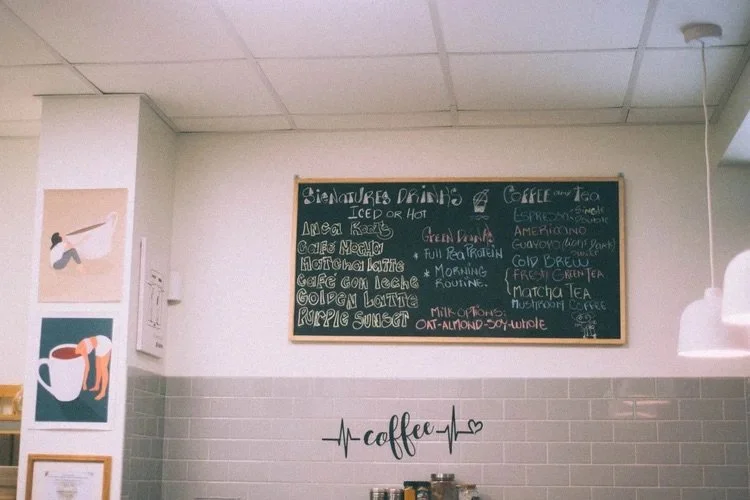 SIGNATURES DRINKS
ICED OR HOT
INCA ROOTS
CAFÉ MOCHA
MATCHA LATTE
CAFÉ CON LECHE
GOLDEN LATTE
PURPLE SUNSET
GREEN DRINKS
* FULL PEA PROTEIN
* MORNING
ROUTINE.
MILK OPTIONS:
OAT-ALMOND-SOY-WHOLE
COFFEE AND TEA
ESPRESSO: SINGLE
DOUBLE
AMERICANO
GUAYOYO (light
COLD BREW
FRESH GREEN TEA
MATCHA TEA
MUSHROOM COFFEE
coffee